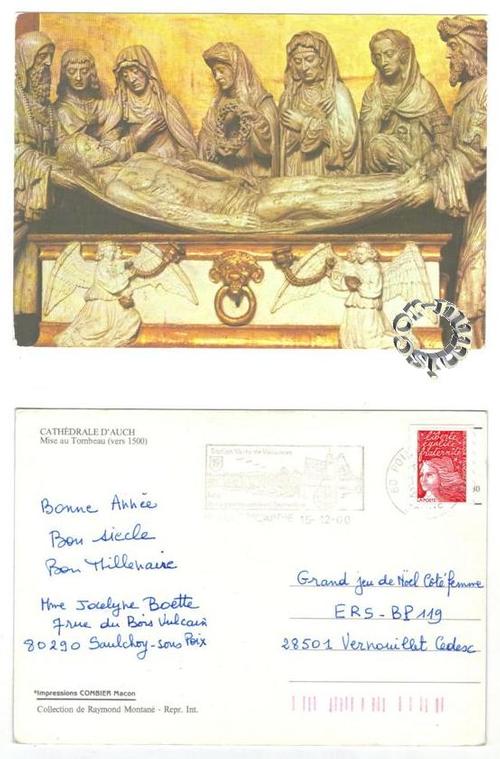 CATHÉDRALE D'AUCH
Mise au Tombeau (vers 1500)
Station Verte de Vacances
15-12-00
liberté
égalité
fraternité
LA POSTE
Bonne Année
Bon siècle
Bon Millénaire
Mme Jocelyne Boette
7 rue du Bois Vulcain
80290 Saulchoy-sous Poix
Grand jeu de Noël Côté femme
ERS-BP 119
28501 Vernouillet Cedesc
*Impressions COMBIER Macon
Collection de Raymond Montané - Repr. Int.